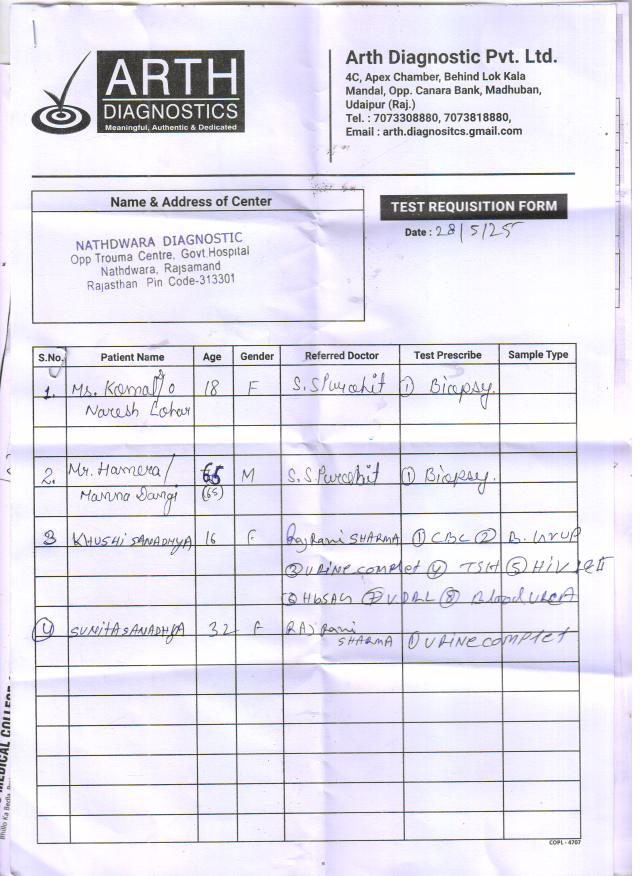 ARTH
DIAGNOSTICS
Meaningful, Authentic & Dedicated
Arth Diagnostic Pvt. Ltd.
4C, Apex Chamber, Behind Lok Kala
Mandal, Opp. Canara Bank, Madhuban,
Udaipur (Raj.)
Tel. : 7073308880, 7073818880,
Email : arth.diagnositcs.gmail.com
Name & Address of Center
NATHDWARA DIAGNOSTIC
Opp Trouma Centre, Govt.Hospital
Nathdwara, Rajsamand
Rajasthan Pin Code-313301
TEST REQUISITION FORM
Date : 28/5/25
S.No. Patient Name Age Gender Referred Doctor Test Prescribe Sample Type
1. Ms. Komal D/o 18 F S.S Purohit ① Biopsy.
Naresh Lohar
2. Mr. Hamera/ 65 M S.S. Purohit ① Biopsy.
Manna Dangi (65)
3 KHUSHI SANADHYA 16 F Raj Rani SHARMA ① CBC ②
③ URINE complet ④ TSH ⑤ HIV I&II
⑥ HbSAG ⑦ VDRL ⑧ Blood UREA
④ SUNITA SANADHYA 32 F RAJ Rani
SHARMA ① URINE complet
MEDICAL COLLEGE
Bhillo Ka Bedla
COPL - 4707